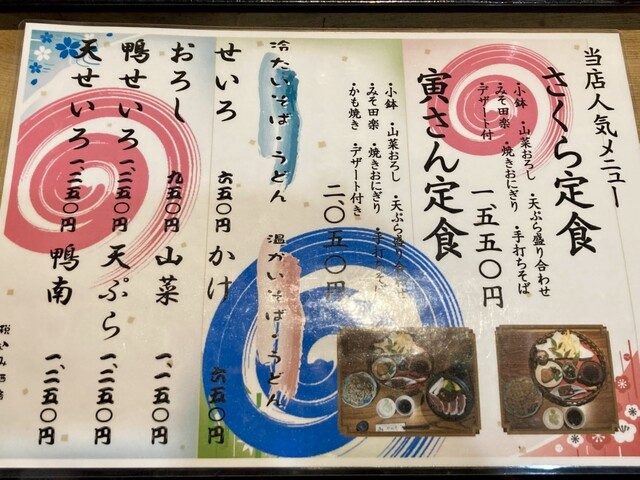 当店人気メニュー
さくら定食
・小鉢 ・山菜おろし ・天ぷら盛り合わせ
・みそ田楽 ・焼きおにぎり ・手打ちそば
・デザート付
一、五五〇円
寅さん定食
・小鉢 ・山菜おろし ・天ぷら盛り合わせ
・みそ田楽 ・焼きおにぎり ・手打ちそば
・かも焼き ・デザート付き
二、〇五〇円
冷たいそば・うどん
せいろ 六五〇円
おろし 九五〇円
鴨せいろ 一、二五〇円
天せいろ 一、二五〇円
温かいそば・うどん
かけ 六五〇円
山菜 一、一五〇円
天ぷら 一、二五〇円
鴨南 一、二五〇円